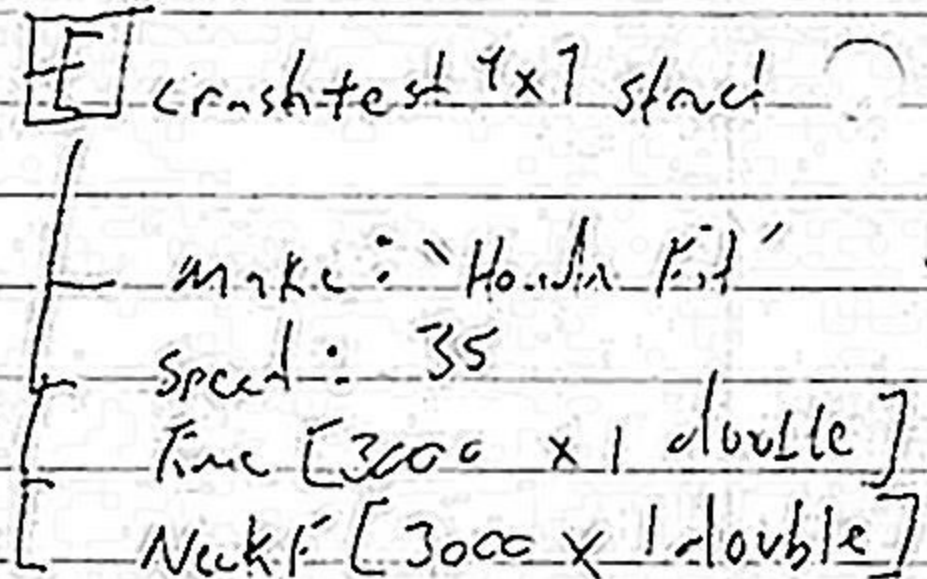 E crashtest 1x1 struct
make: "Honda Fit"
Speed: 35
Time [3000 x 1 double]
NeckF [3000 x 1 double]